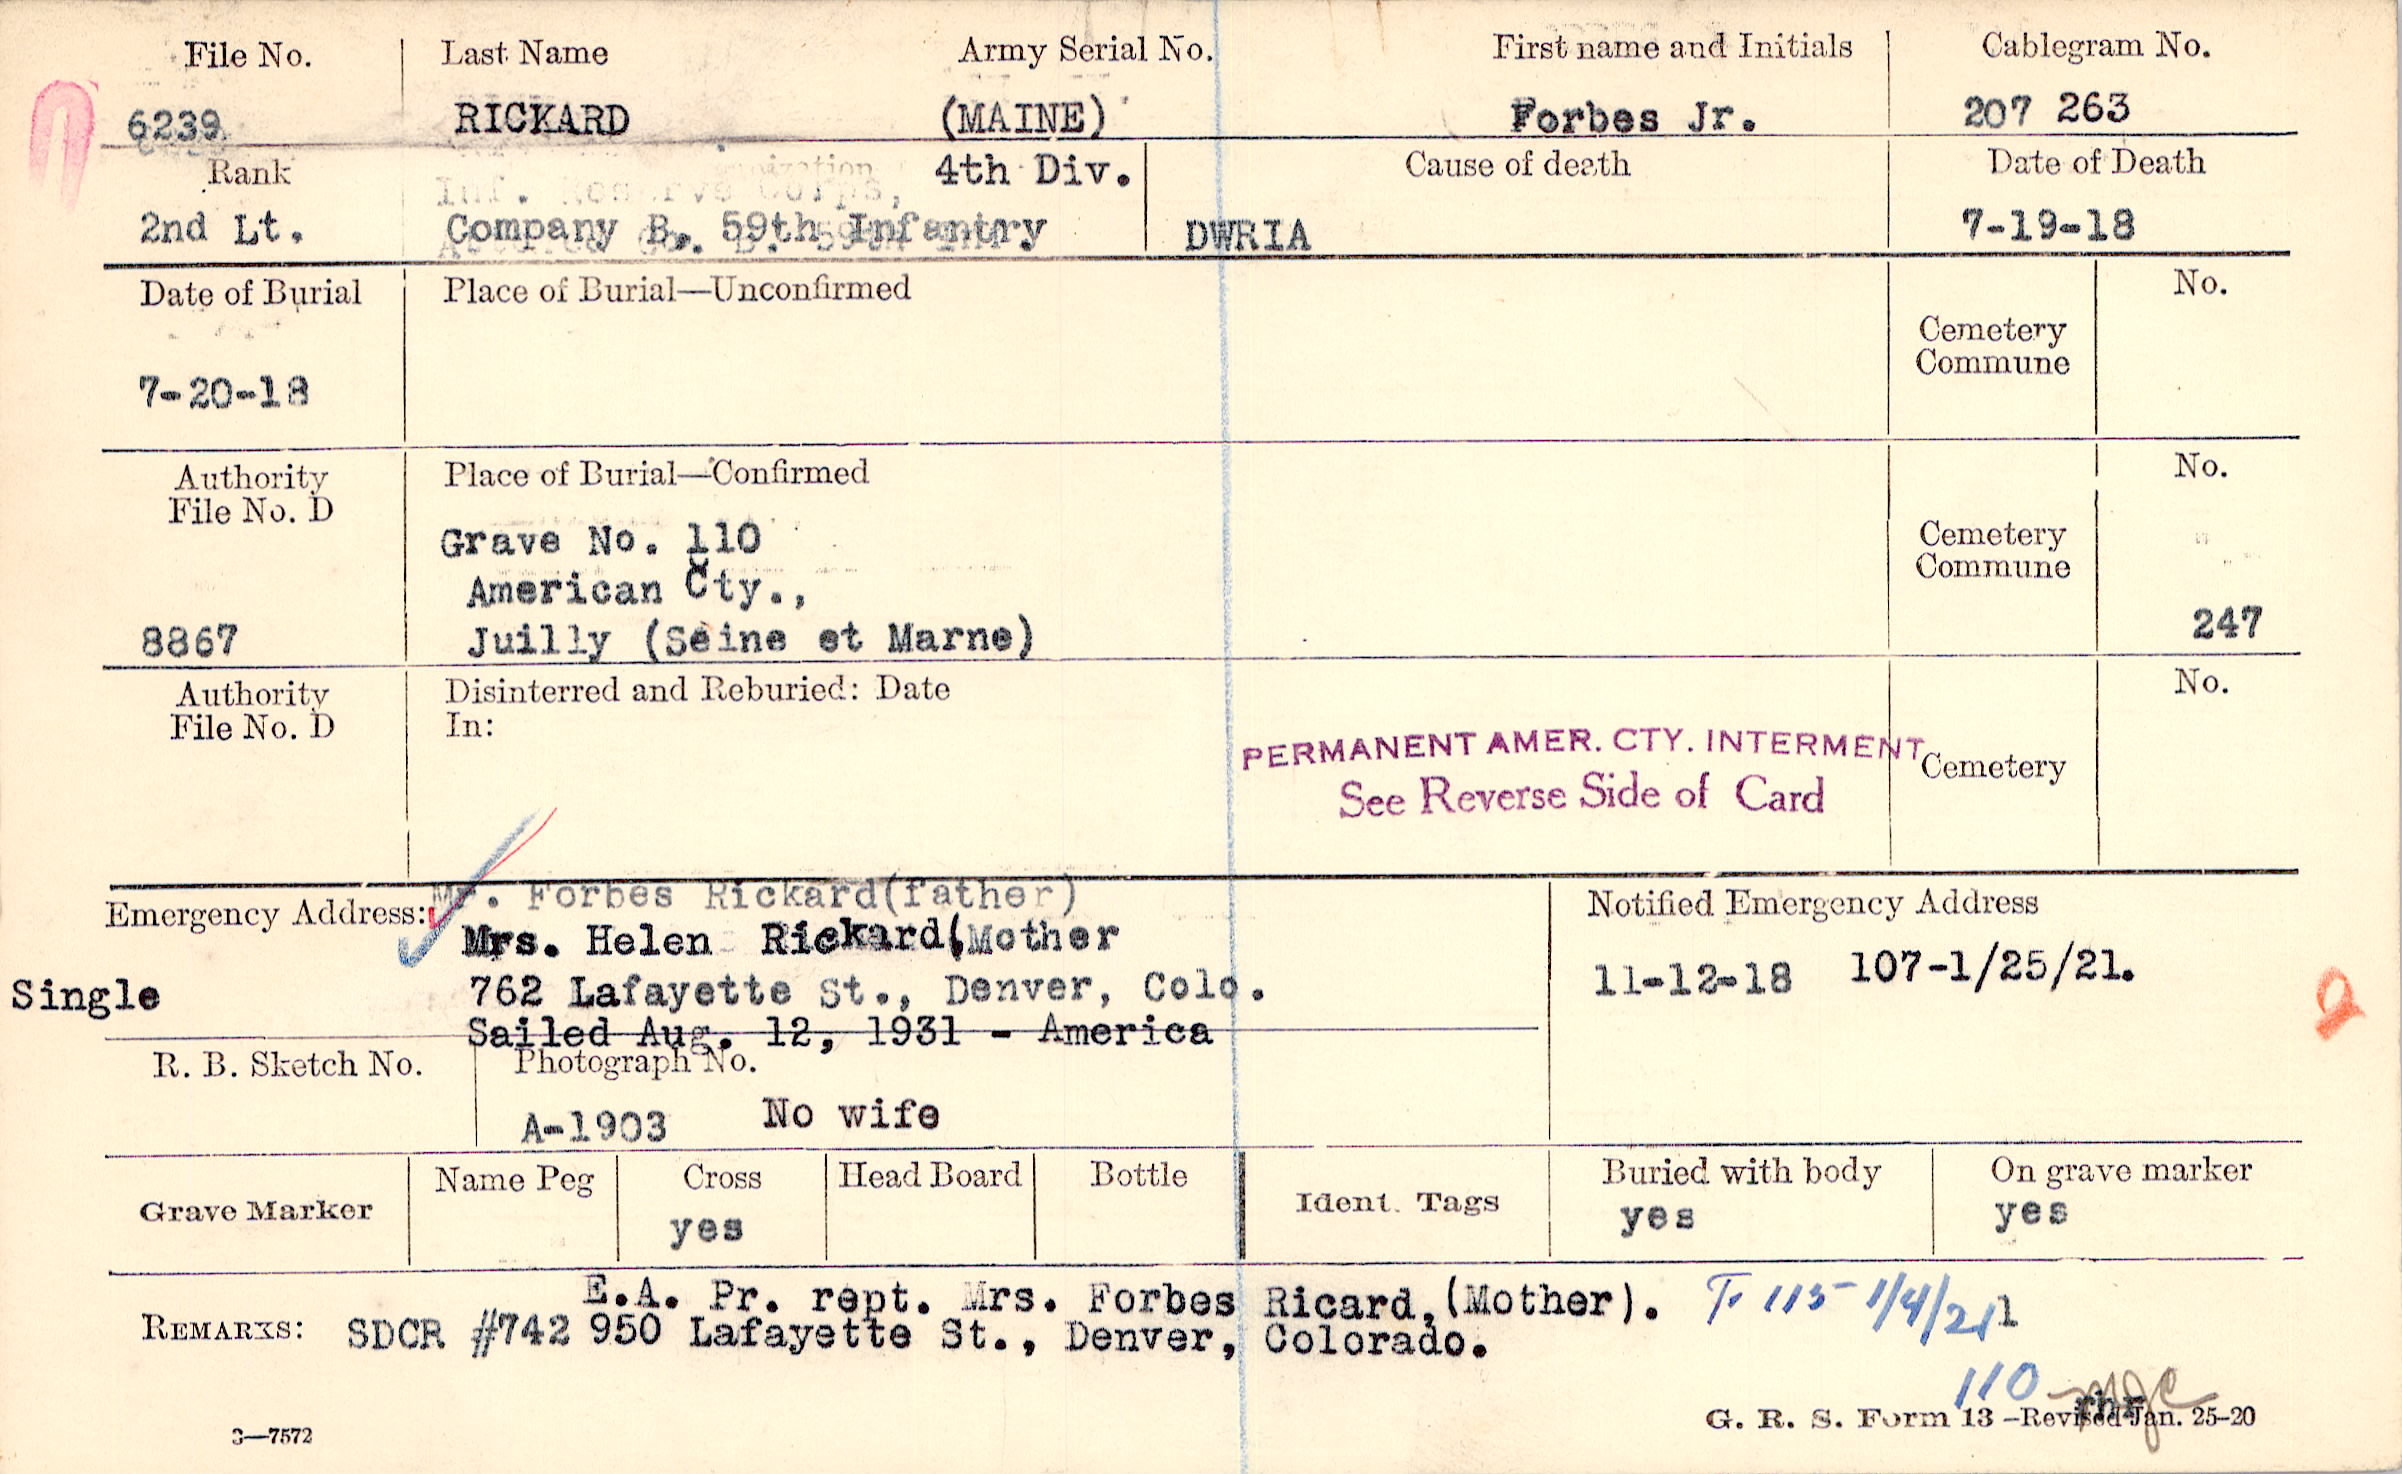 File No. Last Name Army Serial No. First name and Initials Cablegram No.
6239 RICKARD (MAINE) Forbes Jr. 207 263
Rank 4th Div. Cause of death Date of Death
Inf. Reserve Corps,
2nd Lt. Company B. 59th Infantry DWRIA 7-19-18
Date of Burial Place of Burial—Unconfirmed No.
Cemetery
Commune
7-20-18
Authority Place of Burial—Confirmed No.
File No. D
Grave No. 110
Cemetery
Commune
American Cty.,
8867 Juilly (Seine et Marne) 247
Authority Disinterred and Reburied: Date No.
File No. D In:
PERMANENT AMER. CTY. INTERMENT
Cemetery
See Reverse Side of Card
Mr. Forbes Rickard(father)
Emergency Address: Notified Emergency Address
Mrs. Helen Rickard(Mother
Single 762 Lafayette St., Denver, Colo. 11-12-18 107-1/25/21.
Sailed Aug. 12, 1931 - America
R. B. Sketch No. Photograph No.
A-1903 No wife
Grave Marker Name Peg Cross Head Board Bottle Ident. Tags Buried with body On grave marker
yes yes yes
E.A. Pr. rept. Mrs. Forbes Ricard,(Mother). T. 115 1/4/21
REMARKS: SDCR #742 950 Lafayette St., Denver, Colorado.
110 mgc
rhr
3—7572 G. R. S. Form 13 —Revised Jan. 25-20